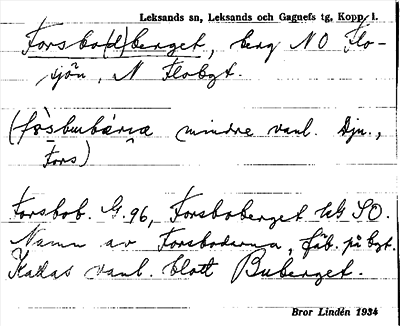 Leksands sn, Leksands och Gagnefs tg, Kopp. l.
Forsbo(d)berget, berg NO Flo-
sjön, N Flobgt.
mindre vanl. Dju.,
Fors)
Forsbob. G. 96, Forsboberget kk SO.
Namn av Forsbodarna, fäb. på bgt.
Kallas vanl. blott Buberget.
Bror Lindén 1934